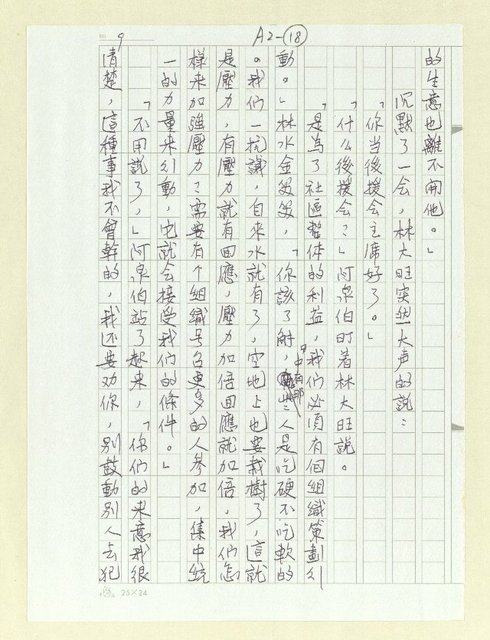 A2-18
9
的生意也離不開他。」
沉默了一会，林大旺突然大声的說：
「你当後援会主席好了。」
「什么後援会？」阿泉伯盯着林大旺說。
「是為了社區整体的利益，我們必須有個組織策劃行
動。」林水金緩緩，「你該了解，人是吃硬不吃軟的
。我們一抗議，自来水就有了，空地上也要栽樹了，這就
是壓力，有壓力就有回應，壓力加倍回應就加倍，我們怎
樣来加強壓力？需要有个組織号召更多的人参加，集中統
一的力量来行動，它就会接受我們的條件。」
「不用說了，」阿泉伯站了起来，「你們的来意我很
清楚，這種事我不曾幹的，我还要劝你，別鼓動別人去犯
25×24